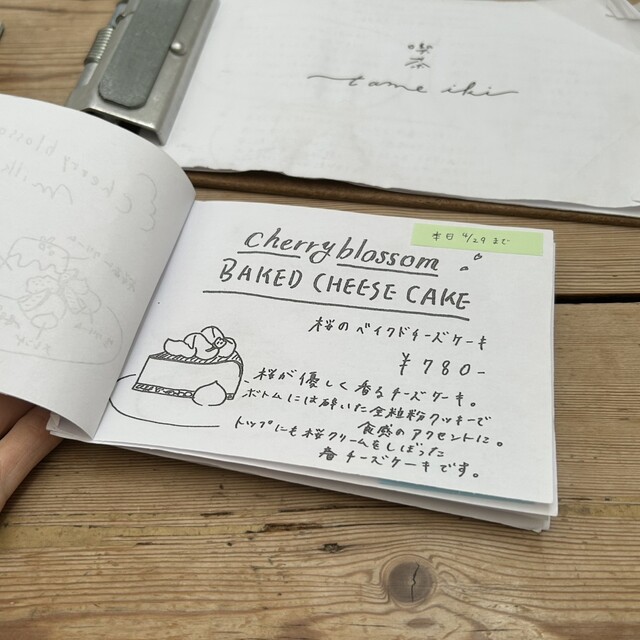 喫
茶
tame iki
Cherry blosso
milk
本日 4/29 まで
cherry blossom
BAKED CHEESE CAKE
桜のベイクドチーズケーキ
¥780-
桜が優しく香るチーズケーキ。
ボトムには砕いた全粒粉クッキーで
食感のアクセントに。
トップにも桜クリームをしぼった
春チーズケーキです。